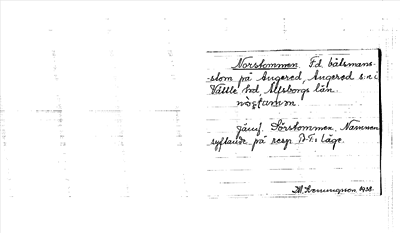 Norstommen. F.d. bälsmans-
-stom på Angered, Angered s:n i
Vättle hd, Älfsborgs län.
nòs̩tùmən
jämf. Sörstommen, Namnen
syftande på resp. A-T:s läge.
Hemingsson 1938